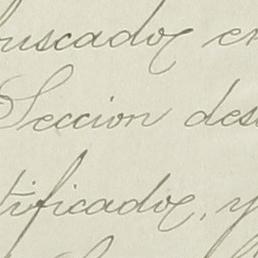 buscador en
Seccion des
tificador, y